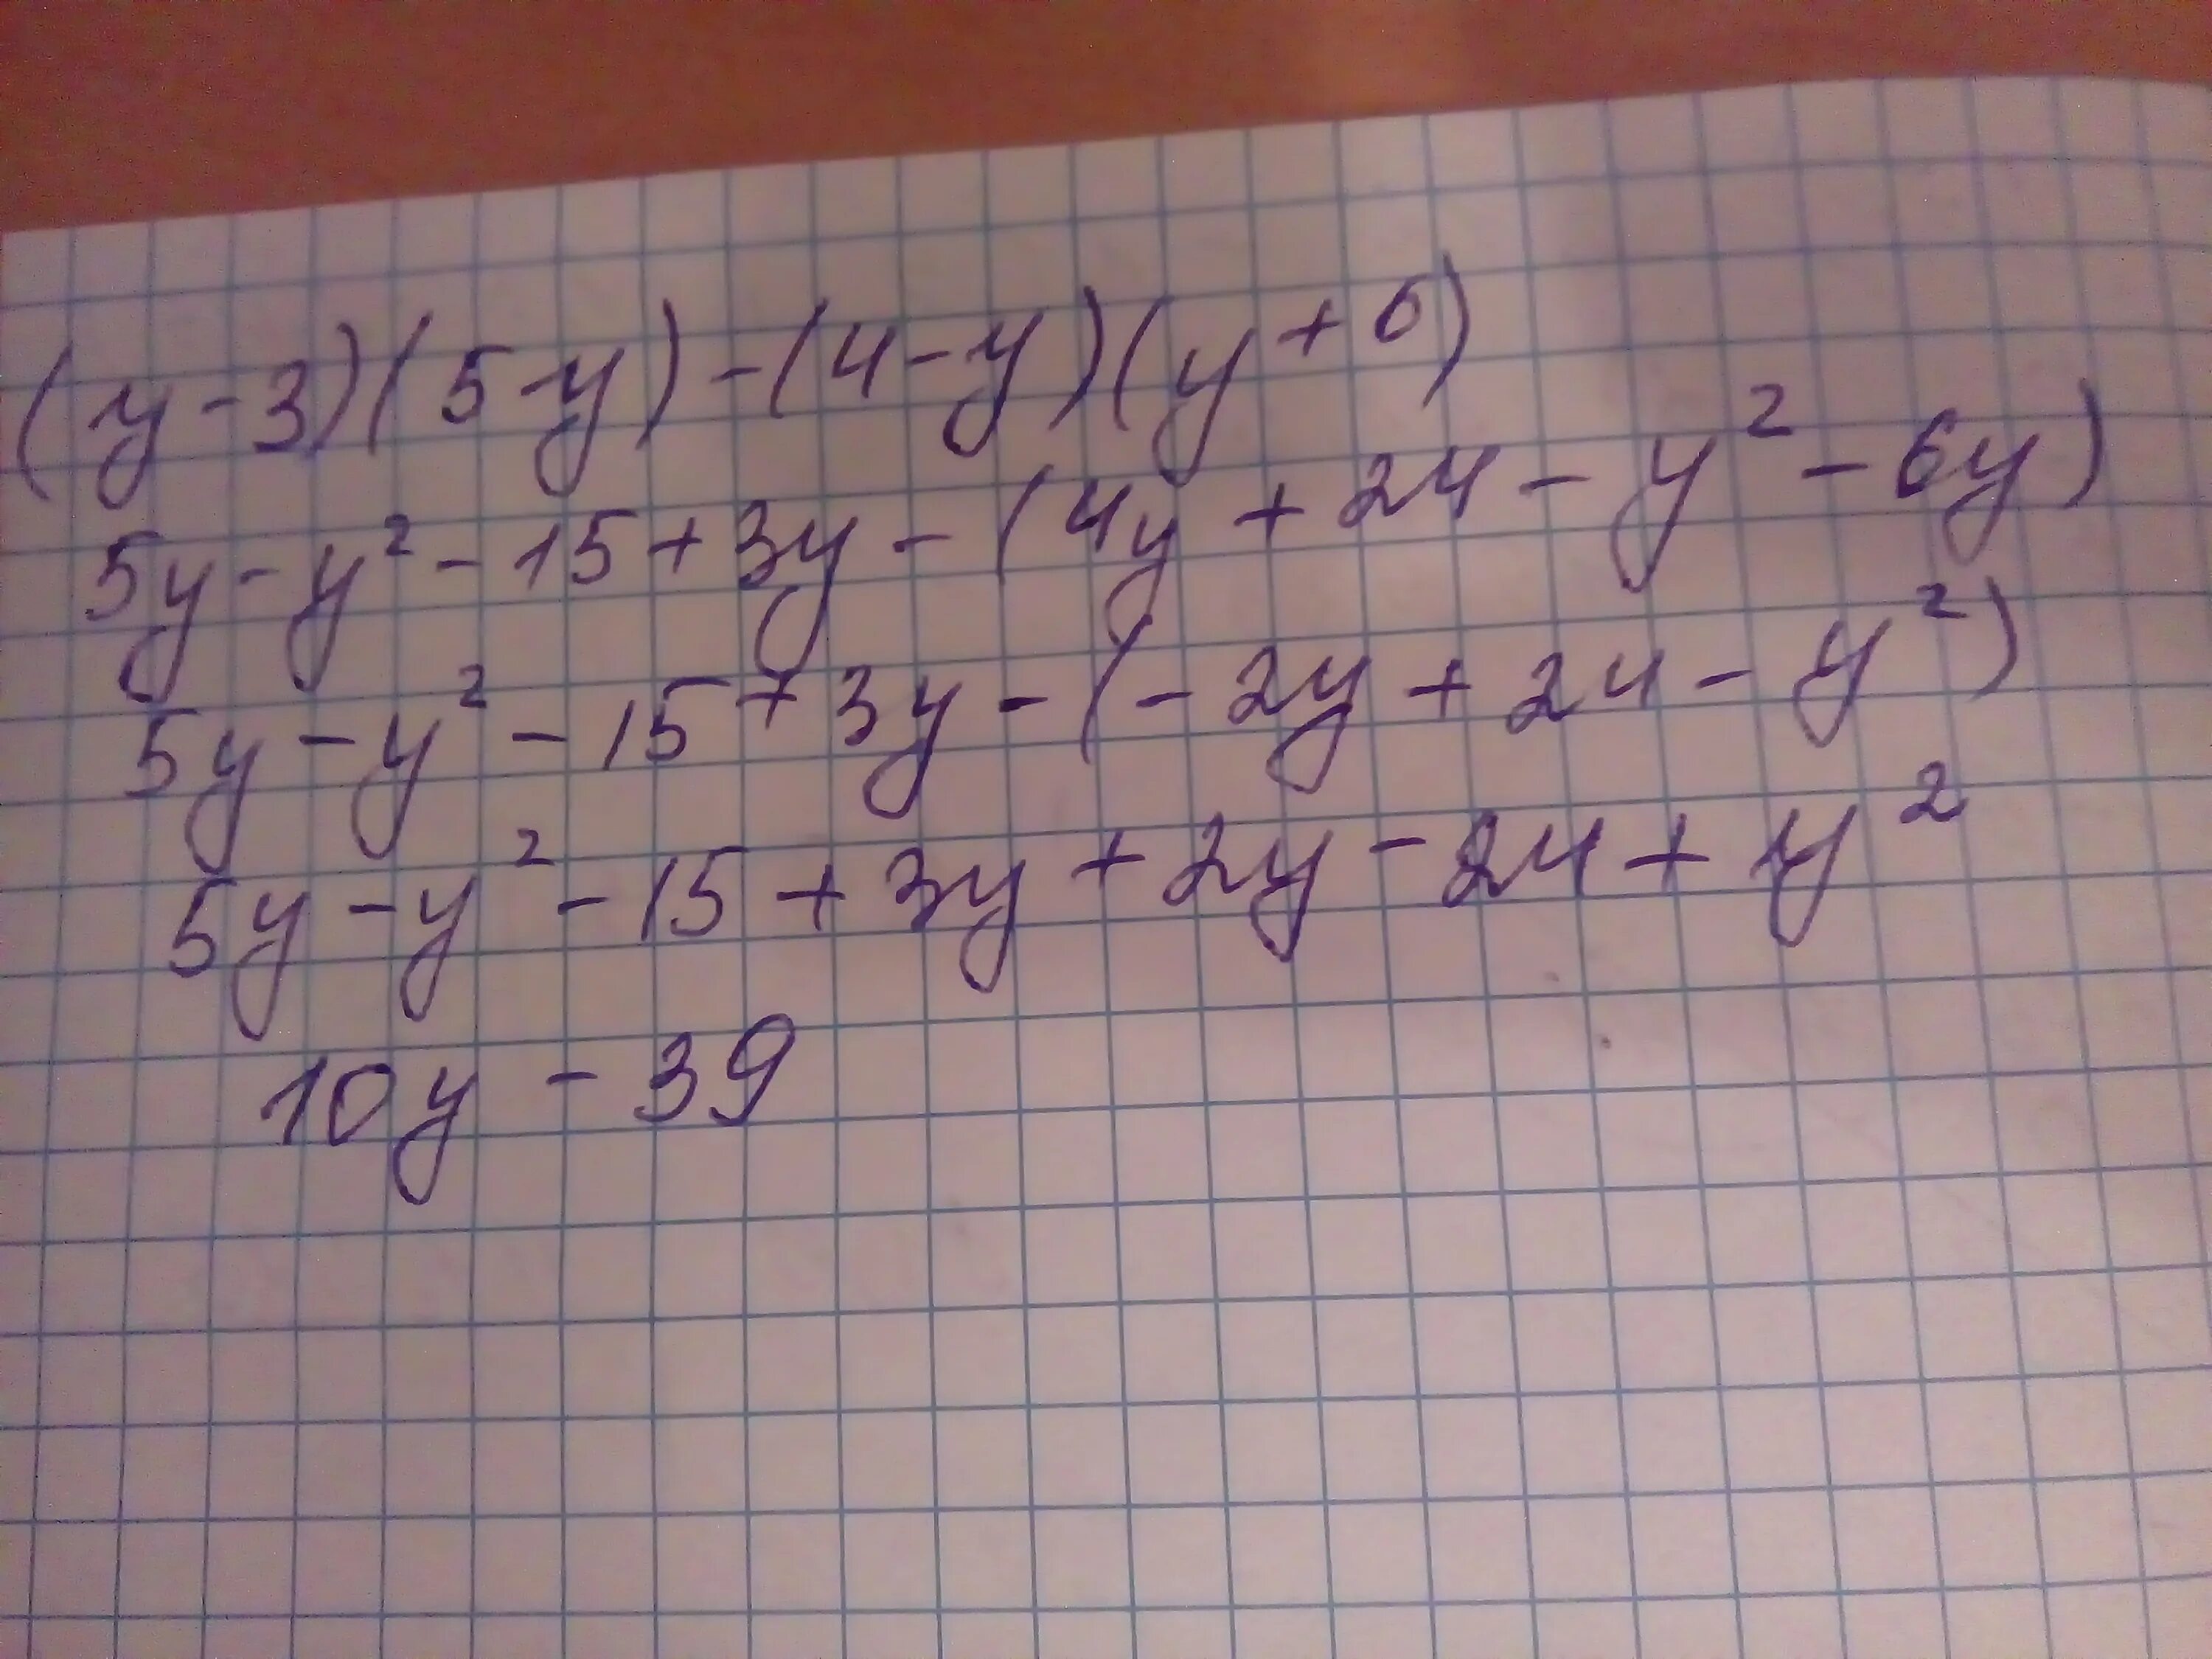 (y-3)(5-y)-(4-y)(y+6)
5y-y²-15+3y-(4y+24-y²-6y)
5y-y²-15+3y-(-2y+24-y²)
5y-y²-15+3y+2y-24+y²
10y-39